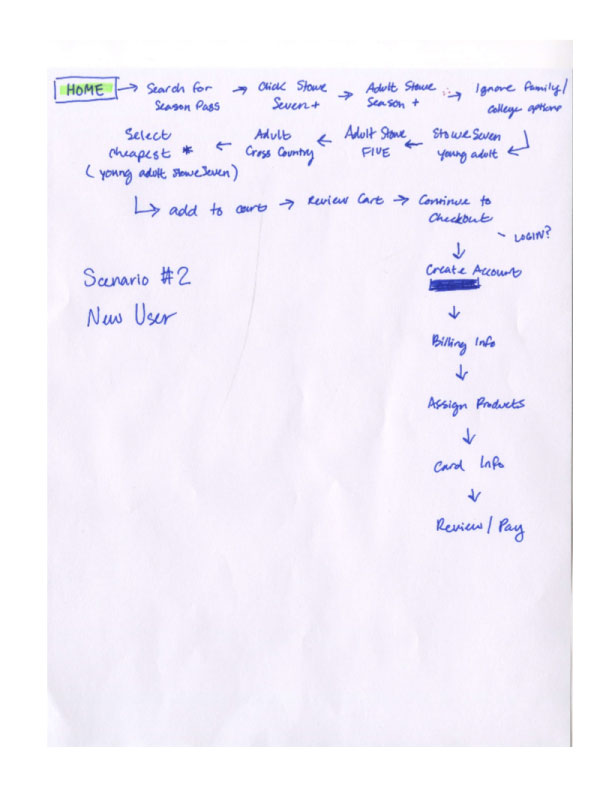 HOME → Search for → Click Stowe → Adult Stowe → Ignore Family/
Season Pass Seven + Season + college options
Select ← Adult ← Adult Stowe ← Stowe Seven
cheapest * Cross Country FIVE young adult
( young adult Stowe Seven )
add to cart → Review Cart → Continue to
Checkout
- LOGIN?
↓
Create Account
↓
Billing Info
↓
Assign Products
↓
Card Info
↓
Review / Pay
Scenario #2
New User